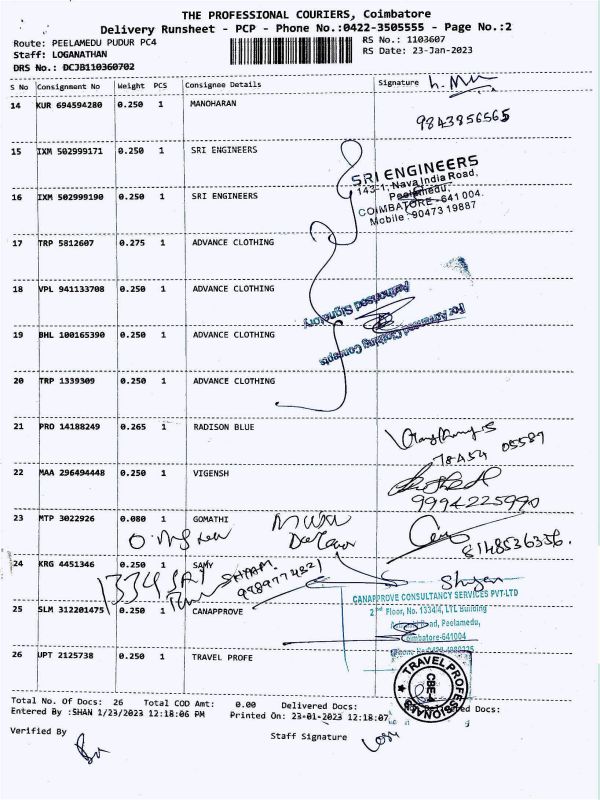 THE PROFESSIONAL COURIERS, Coimbatore
Delivery Runsheet - PCP - Phone No.:0422-3505555 - Page No.:2
Route: PEELAMEDU PUDUR PC4
RS No.: 1103607
Staff: LOGANATHAN
RS Date: 23-Jan-2023
DRS No.: DCJB110360702
S No Consignment No Weight PCS Consignee Details Signature
14 KUR 694594280 0.250 1 MANOHARAN
9843856565
15 IXM 502999171 0.250 1 SRI ENGINEERS
SRI ENGINEERS
143-1, Nava India Road,
Peelamedu,
COIMBATORE-641 004.
Mobile: 90473 19887
16 IXM 502999190 0.250 1 SRI ENGINEERS
17 TRP 5812607 0.275 1 ADVANCE CLOTHING
18 VPL 941133708 0.250 1 ADVANCE CLOTHING
For Advanced Clothing Concepts
Authorised Signatory
19 BHL 100165390 0.250 1 ADVANCE CLOTHING
20 TRP 1339309 0.250 1 ADVANCE CLOTHING
21 PRO 14188249 0.265 1 RADISON BLUE
78454 05589
22 MAA 296494448 0.250 1 VIGENSH
9994225990
23 MTP 3022926 0.080 1 GOMATHI
8148536356.
24 KRG 4451346 0.250 1 SAMY
SHYAM.
9989774821
25 SLM 312201475 0.250 1 CANAPPROVE
CANAPPROVE CONSULTANCY SERVICES PVT-LTD
2nd Floor, No. 1334/4, LTL Building
Road, Peelamedu,
Coimbatore-641004
26 UPT 2125738 0.250 1 TRAVEL PROFE
TRAVEL PROFESSIONALS
CBE-4
Total No. Of Docs: 26 Total COD Amt: 0.00 Delivered Docs: Docs:
Entered By :SHAN 1/23/2023 12:18:06 PM Printed On: 23-01-2023 12:18:07
Verified By
Staff Signature